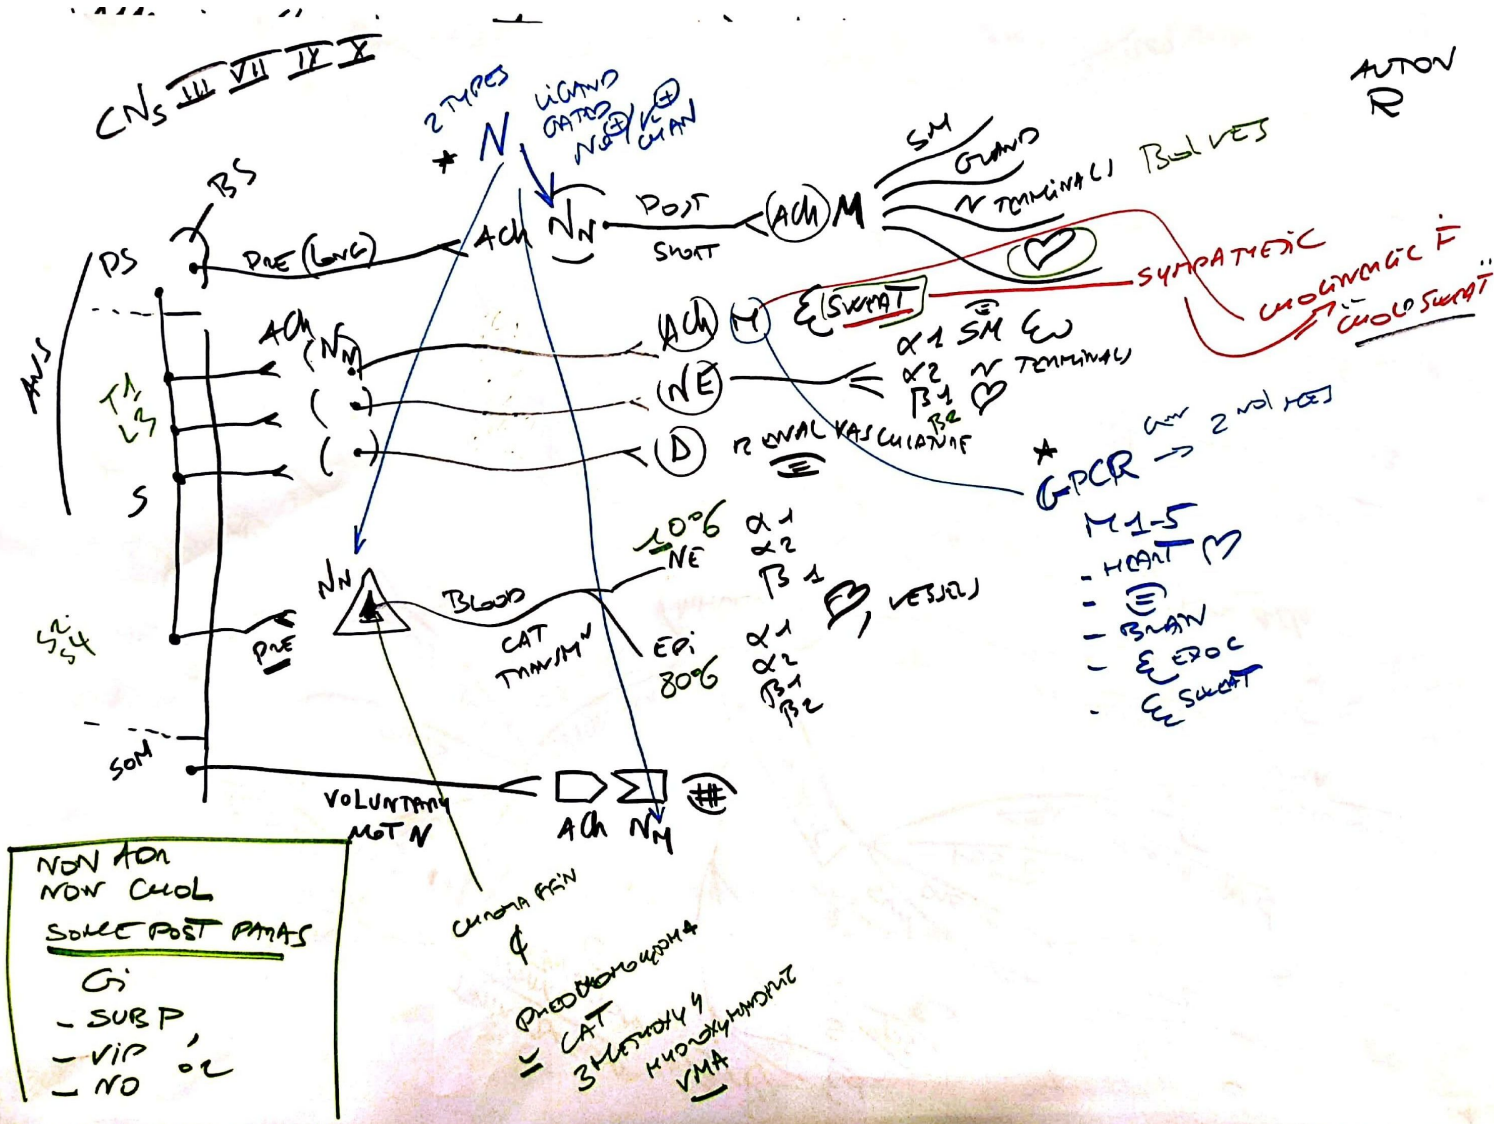 CNs III VII IX X
AUTON
R
2 TYPES
* N
LIGAND
GATED
Na+/K+
CHAN
BS
PS
PRE (LONG)
ACh
NN
POST
SHORT
ACh M
SM
GLAND
N TERMINALS
B
VES
ANS
ACh
(NN)
ACh M
SWEAT
SYMPATHETIC
CHOLINERGIC F
CHOLD SWEAT
T1
L3
( )
NE
α1 SM
α2 N TERMINALS
β1
β2
( )
D
RENAL VASCULATURE
S
* GPCR → 2nd MES
M1-5
- HEART
-
- BRAIN
- EXOC
- SWEAT
S2
S4
PRE
NN
BLOOD
CAT
TRANSMN
10%
NE
α1
α2
β1
, VESSELS
EPi
80%
α1
α2
β1
β2
SOM
VOLUNTARY
MOT N
ACh
NM
NON ADR
NON CHOL
SOME POST PARAS
Gi
- SUB P
- ViP
- NO
CHROMAFFIN
PHEOCHROMOCYTOMA
CAT
3 METHOXY 4
HYDROXYMANDELIC
VMA